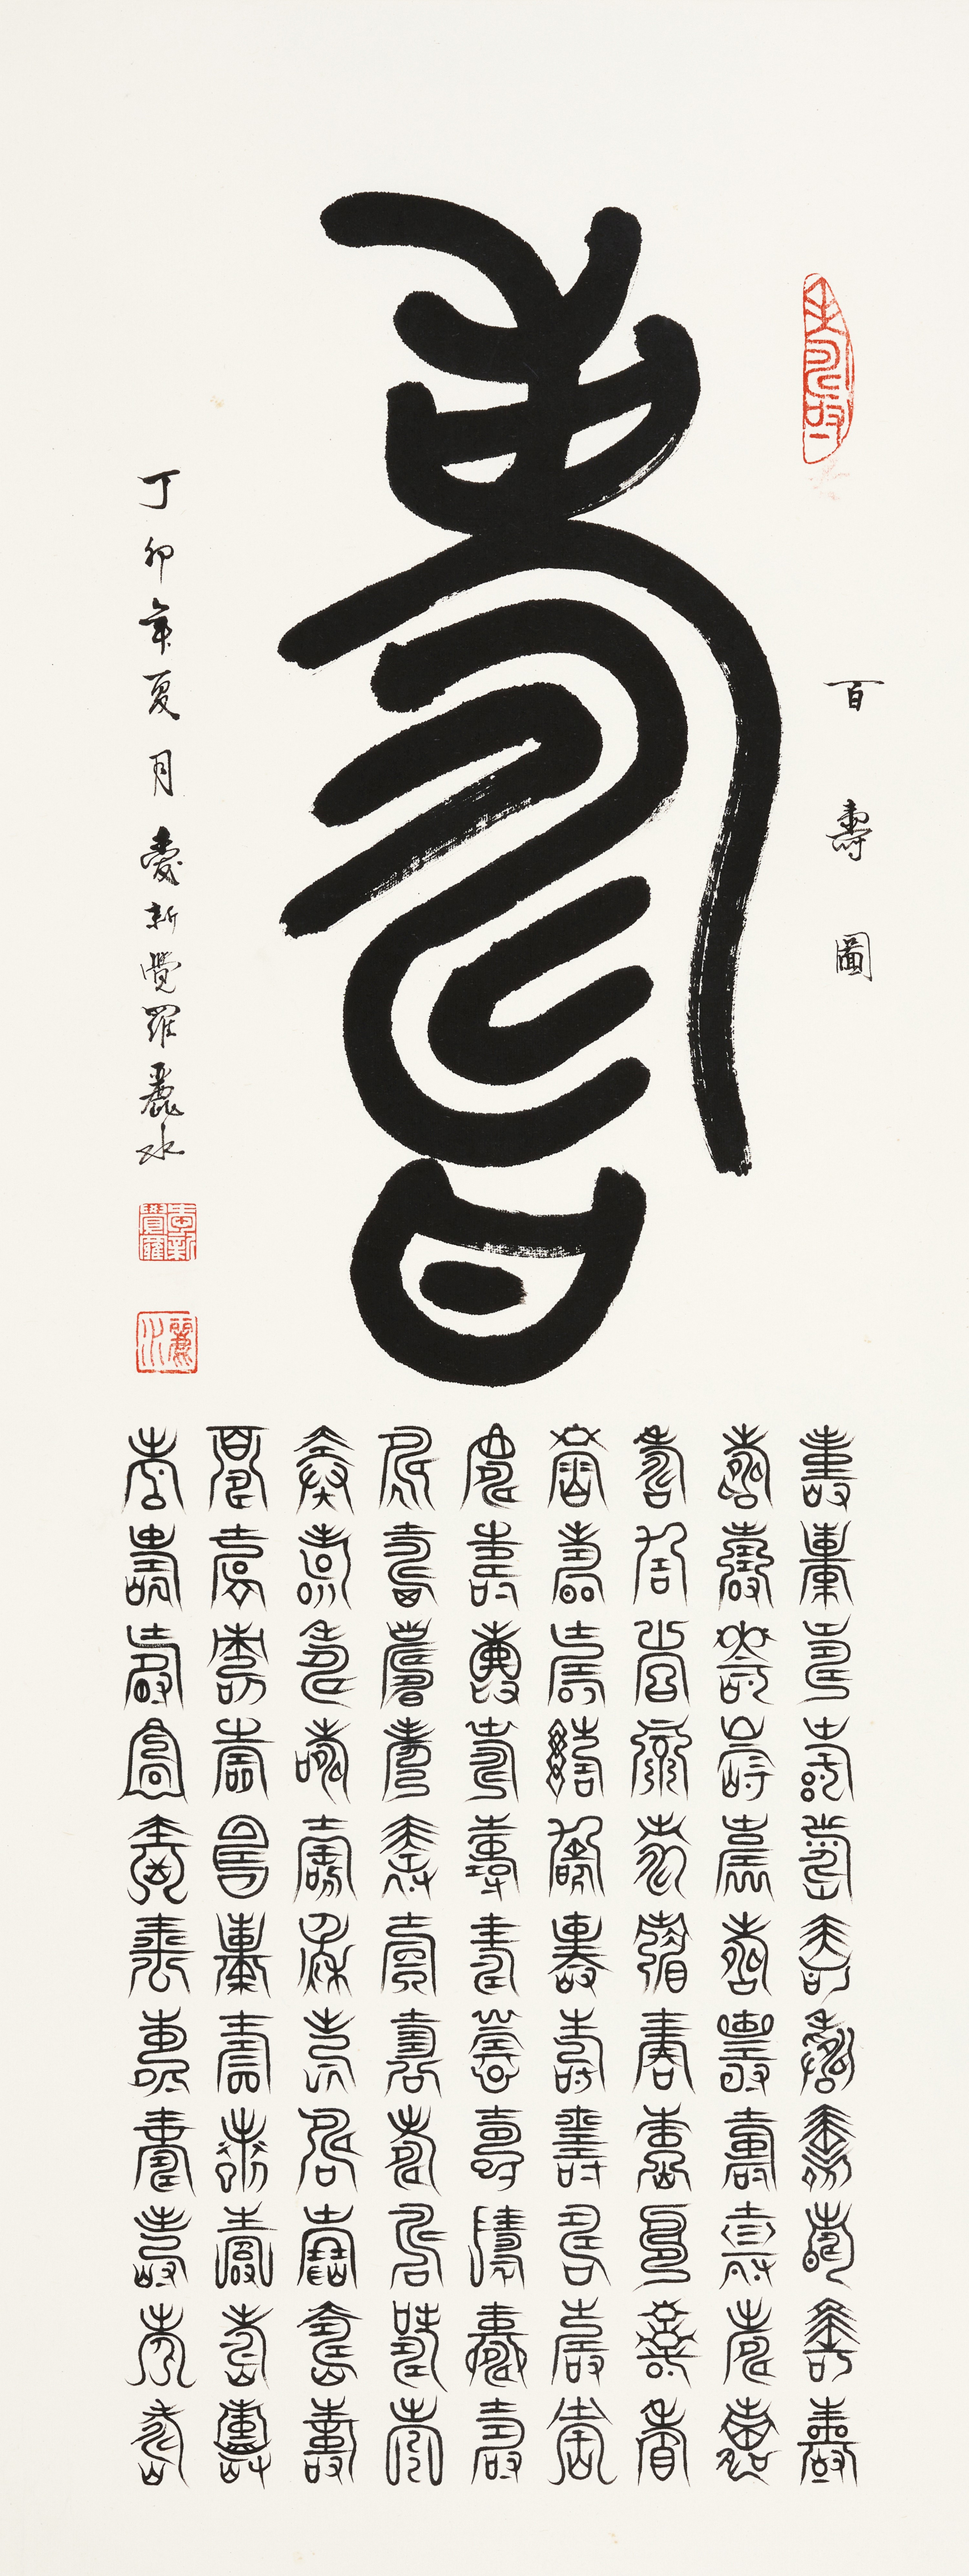 百壽圖
壽
丁卯年夏月愛新覺羅麗水
愛新覺羅
麗水
壽壽壽壽壽壽壽壽壽壽壽
壽壽壽壽壽壽壽壽壽壽壽
壽壽壽壽壽壽壽壽壽壽壽
壽壽壽壽壽壽壽壽壽壽壽
壽壽壽壽壽壽壽壽壽壽壽
壽壽壽壽壽壽壽壽壽壽壽
壽壽壽壽壽壽壽壽壽壽壽
壽壽壽壽壽壽壽壽壽壽壽
壽壽壽壽壽壽壽壽壽壽壽